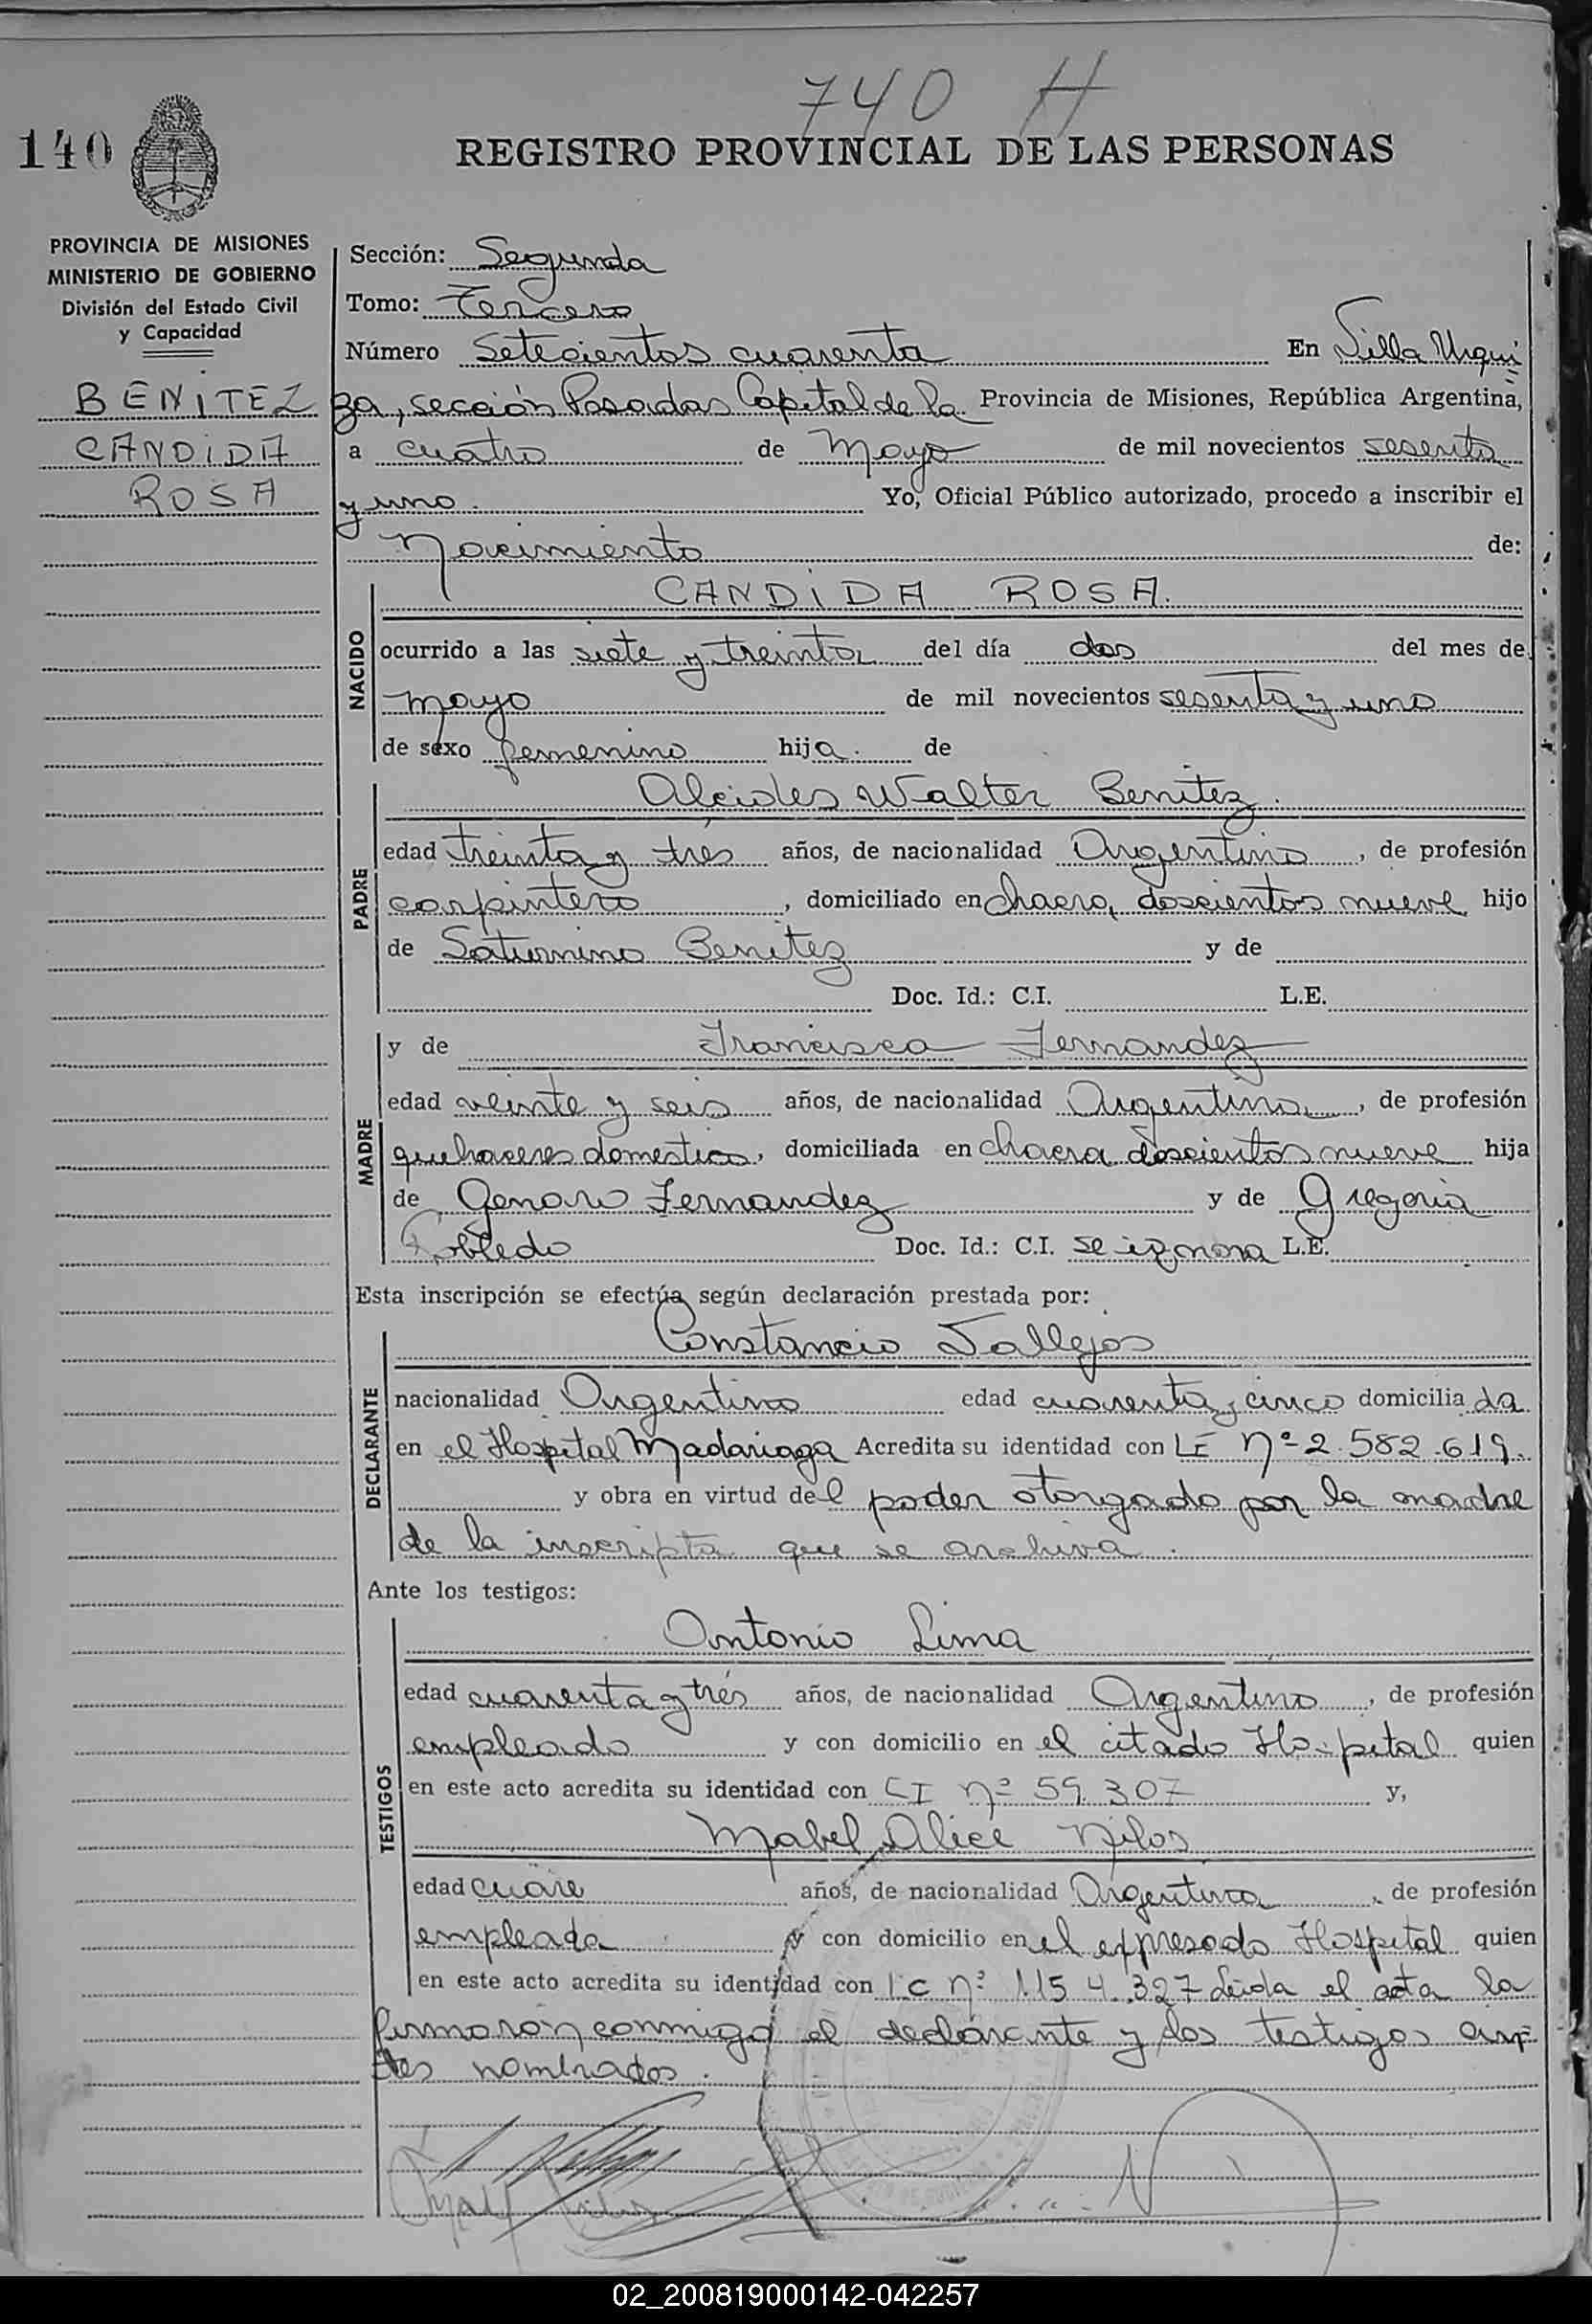 740 H
140
REGISTRO PROVINCIAL DE LAS PERSONAS
PROVINCIA DE MISIONES
MINISTERIO DE GOBIERNO
División del Estado Civil
y Capacidad
BENiTEZ
CANDiDA
ROSA
Sección: Segunda
Tomo: Tercero
Número Setecientos cuarenta En Villa Urqui
za, sección Posadas Capital de la Provincia de Misiones, República Argentina,
a cuatro de Mayo de mil novecientos sesenta
y uno. Yo, Oficial Público autorizado, procedo a inscribir el
Nacimiento de:
NACIDO
CANDiDA ROSA.
ocurrido a las siete y treinta del día dos del mes de
mayo de mil novecientos sesenta y uno
de sexo femenino hija. de
PADRE
Alcides Walter Benitez.
edad treinta y trés años, de nacionalidad Argentino, de profesión
carpintero, domiciliado en chacra doscientos nueve hijo
de Saturnino Benitez y de
Doc. Id.: C.I. L.E.
MADRE
y de Francisca Fernandez
edad veinte y seis años, de nacionalidad Argentina, de profesión
quehaceres domesticos, domiciliada en chacra doscientos nueve hija
de Genaro Fernandez y de Gregoria
Robledo Doc. Id.: C.I. se ignora L.E.
Esta inscripción se efectúa según declaración prestada por:
DECLARANTE
Constancio Vallejos
nacionalidad Argentino edad cuarenta y cinco domicilia da
en el Hospital Madariaga Acredita su identidad con LE Nº 2.582.619.
y obra en virtud del poder otorgado por la madre
de la inscripta que se archiva.
Ante los testigos:
TESTIGOS
Antonio Lima
edad cuarenta y trés años, de nacionalidad Argentino, de profesión
empleado y con domicilio en el citado Hospital quien
en este acto acredita su identidad con CI Nº 59.307 y,
Mabel Alice Nilos
edad cuare años, de nacionalidad Argentina, de profesión
empleada y con domicilio en el expresado Hospital quien
en este acto acredita su identidad con LC Nº 115 4.327 Leida el acta la
firmaron conmigo el declarante y los testigos an
tes nombrados.
02_200819000142-042257